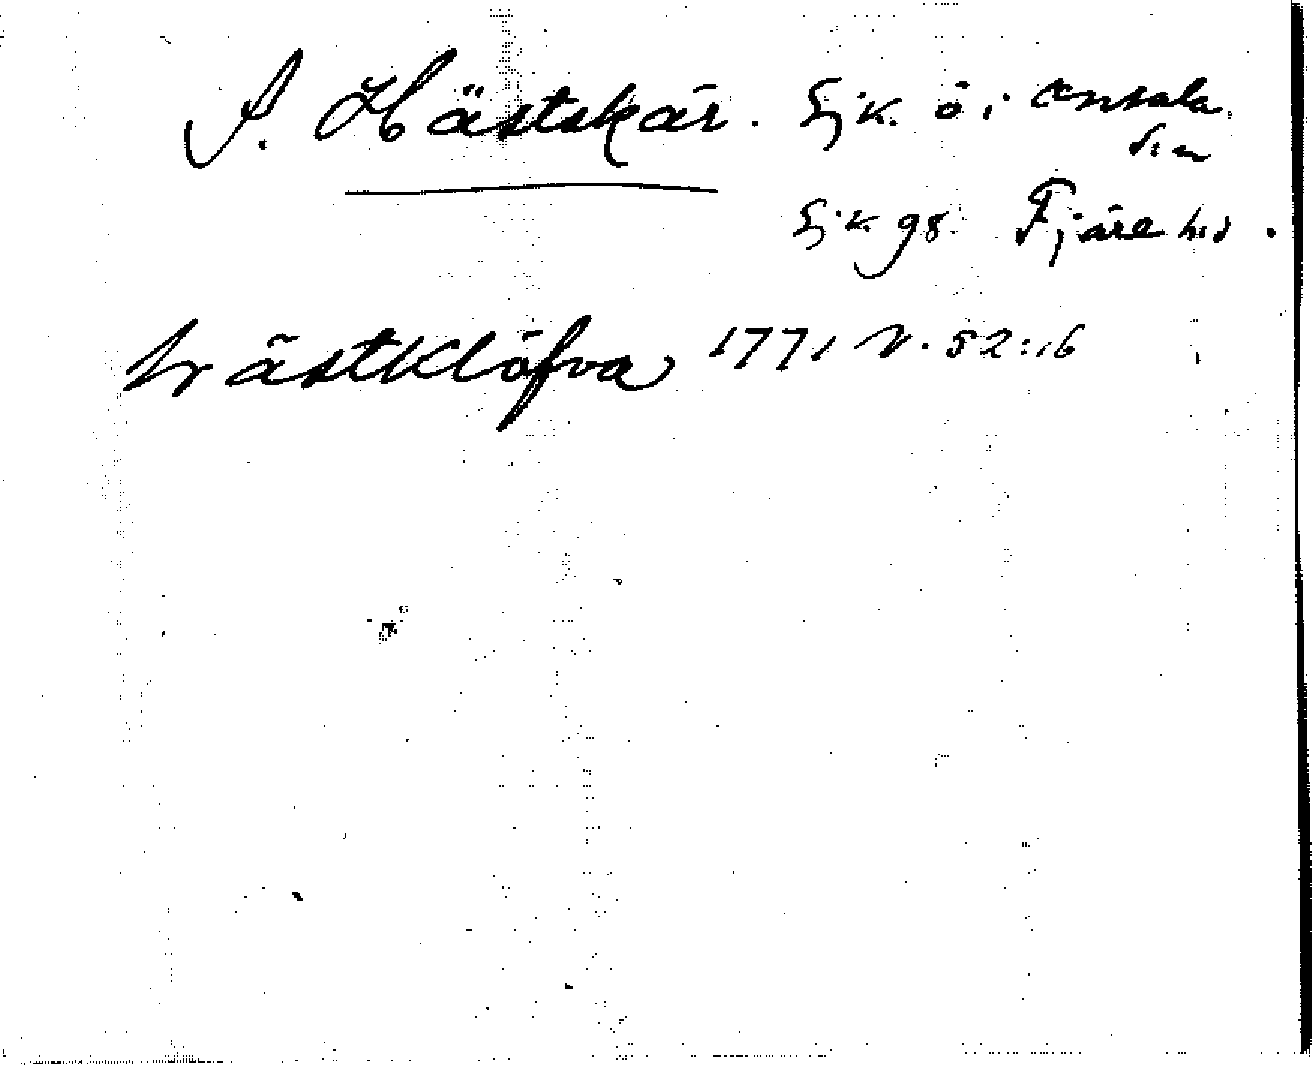 S. Hästskär. Sjk. ö i Onsala
sn
Sjk 98 Fjäre hd.
hästklöfva 1771 N. 52:16